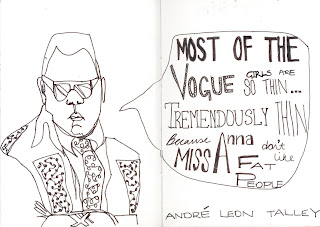 MOST OF THE
VOGUE GIRLS ARE
SO THIN...
TREMENDOUSLY THIN
Because Anna don't
MISS like
FAT
PEOPLE
ANDRÉ LEON TALLEY